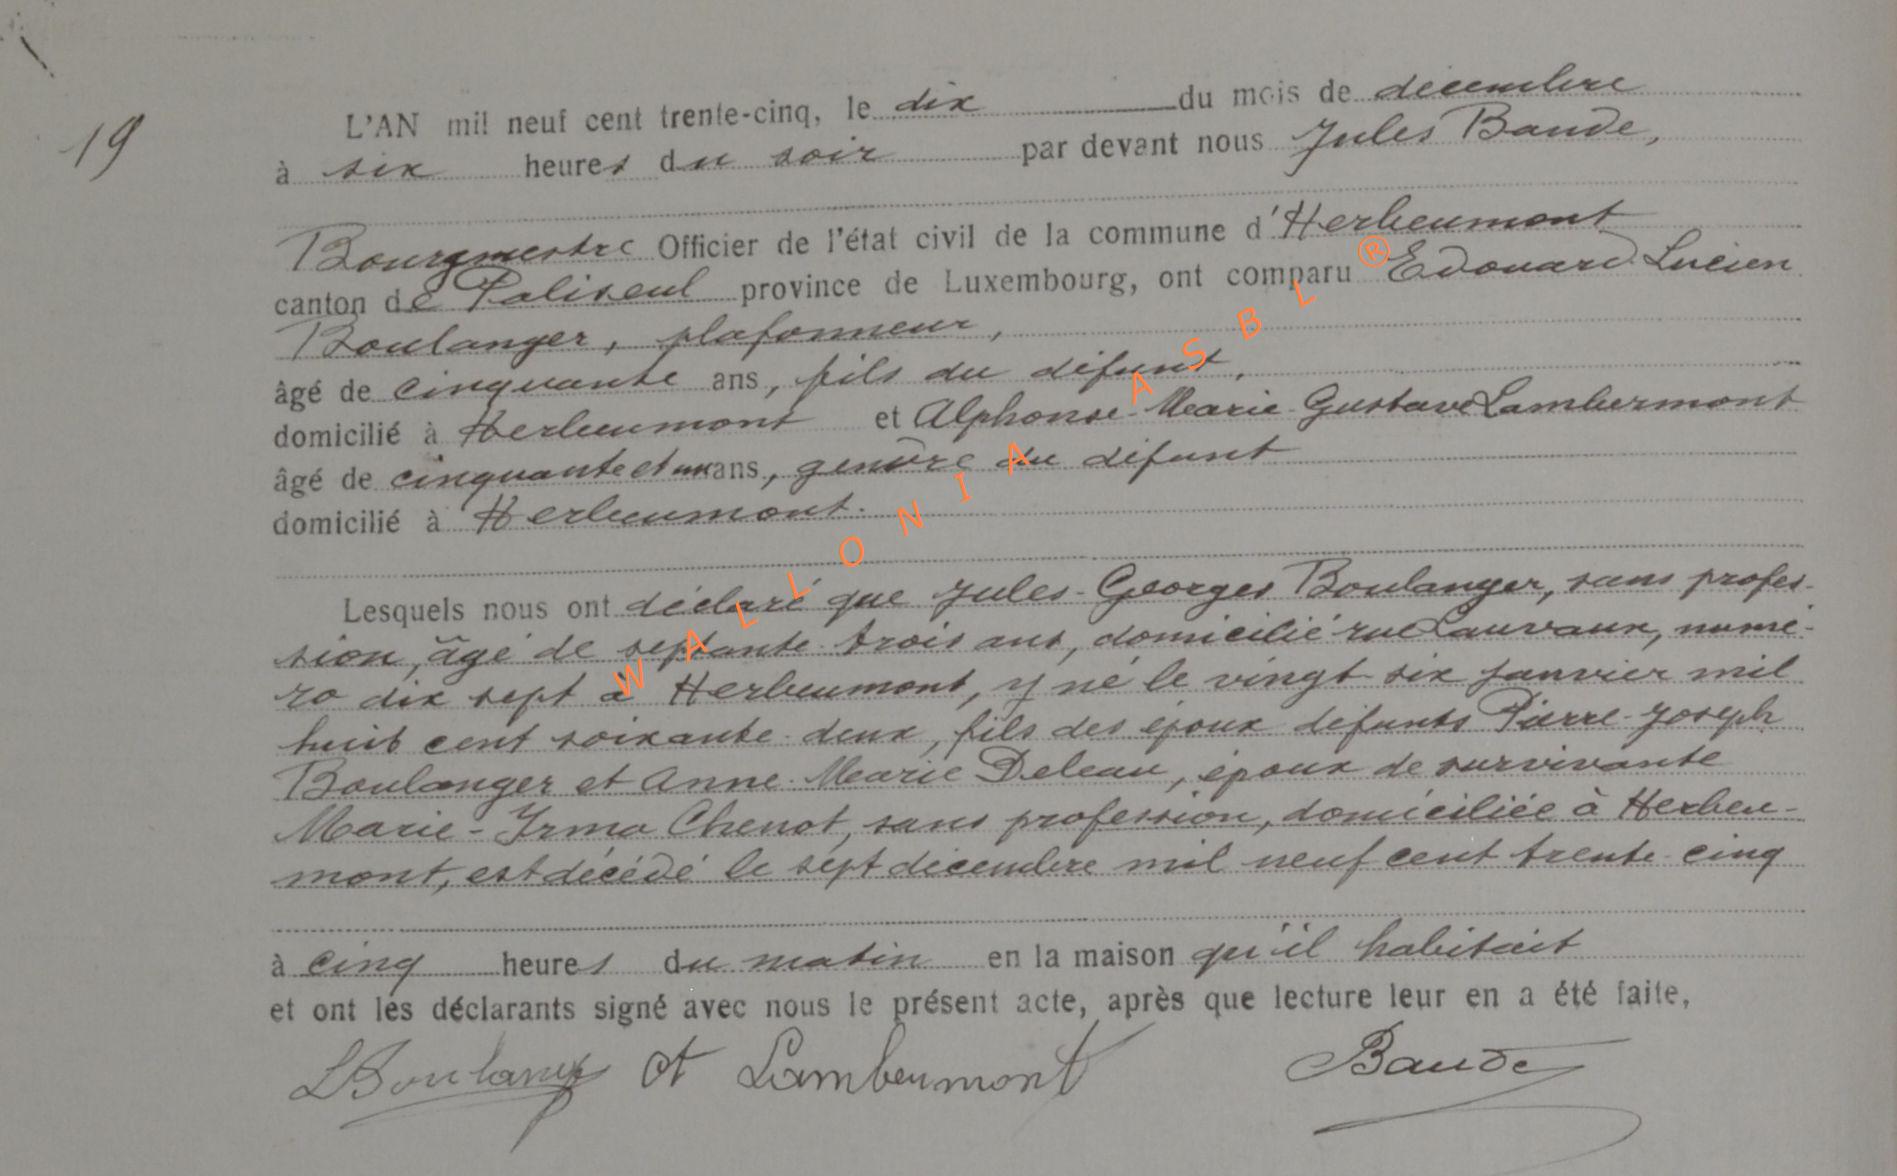 19
L'AN mil neuf cent trente-cinq, le dix du mois de décembre
à six heures du soir par devant nous Jules Baude,
Bourgmestre Officier de l'état civil de la commune d'Herbeumont
canton de Paliseul province de Luxembourg, ont comparu Edouard Lucien
Boulanger, plafonneur,
âgé de cinquante ans, fils du défunt,
domicilié à Herbeumont et Alphonse-Marie-Gustave Lambermont
âgé de cinquante et un ans, gendre du défunt
domicilié à Herbeumont.
Lesquels nous ont déclaré que Jules-Georges Boulanger, sans profes-
sion, âgé de septante-trois ans, domicilié rue Lauvaux, numé-
ro dix sept à Herbeumont, y né le vingt-six janvier mil
huit cent soixante-deux, fils des époux défunts Pierre-Joseph
Boulanger et Anne-Marie Deleau, époux de survivante
Marie-Irma Chenot, sans profession, domiciliée à Herbeu-
mont, est décédé le sept décembre mil neuf cent trente-cinq
à cinq heures du matin en la maison qu'il habitait
et ont les déclarants signé avec nous le présent acte, après que lecture leur en a été faite,
LBoulanger A Lambermont Baude
WALLONIA ASBL ®